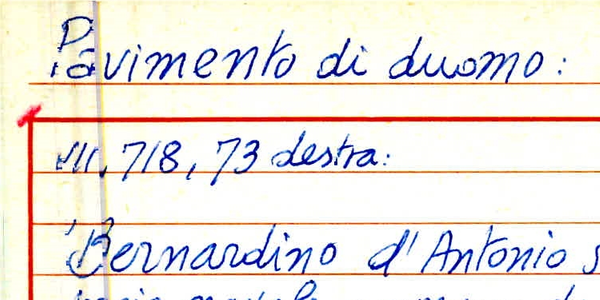 Pavimento di duomo:
M. 718, 73 destra:
Bernardino d'Antonio